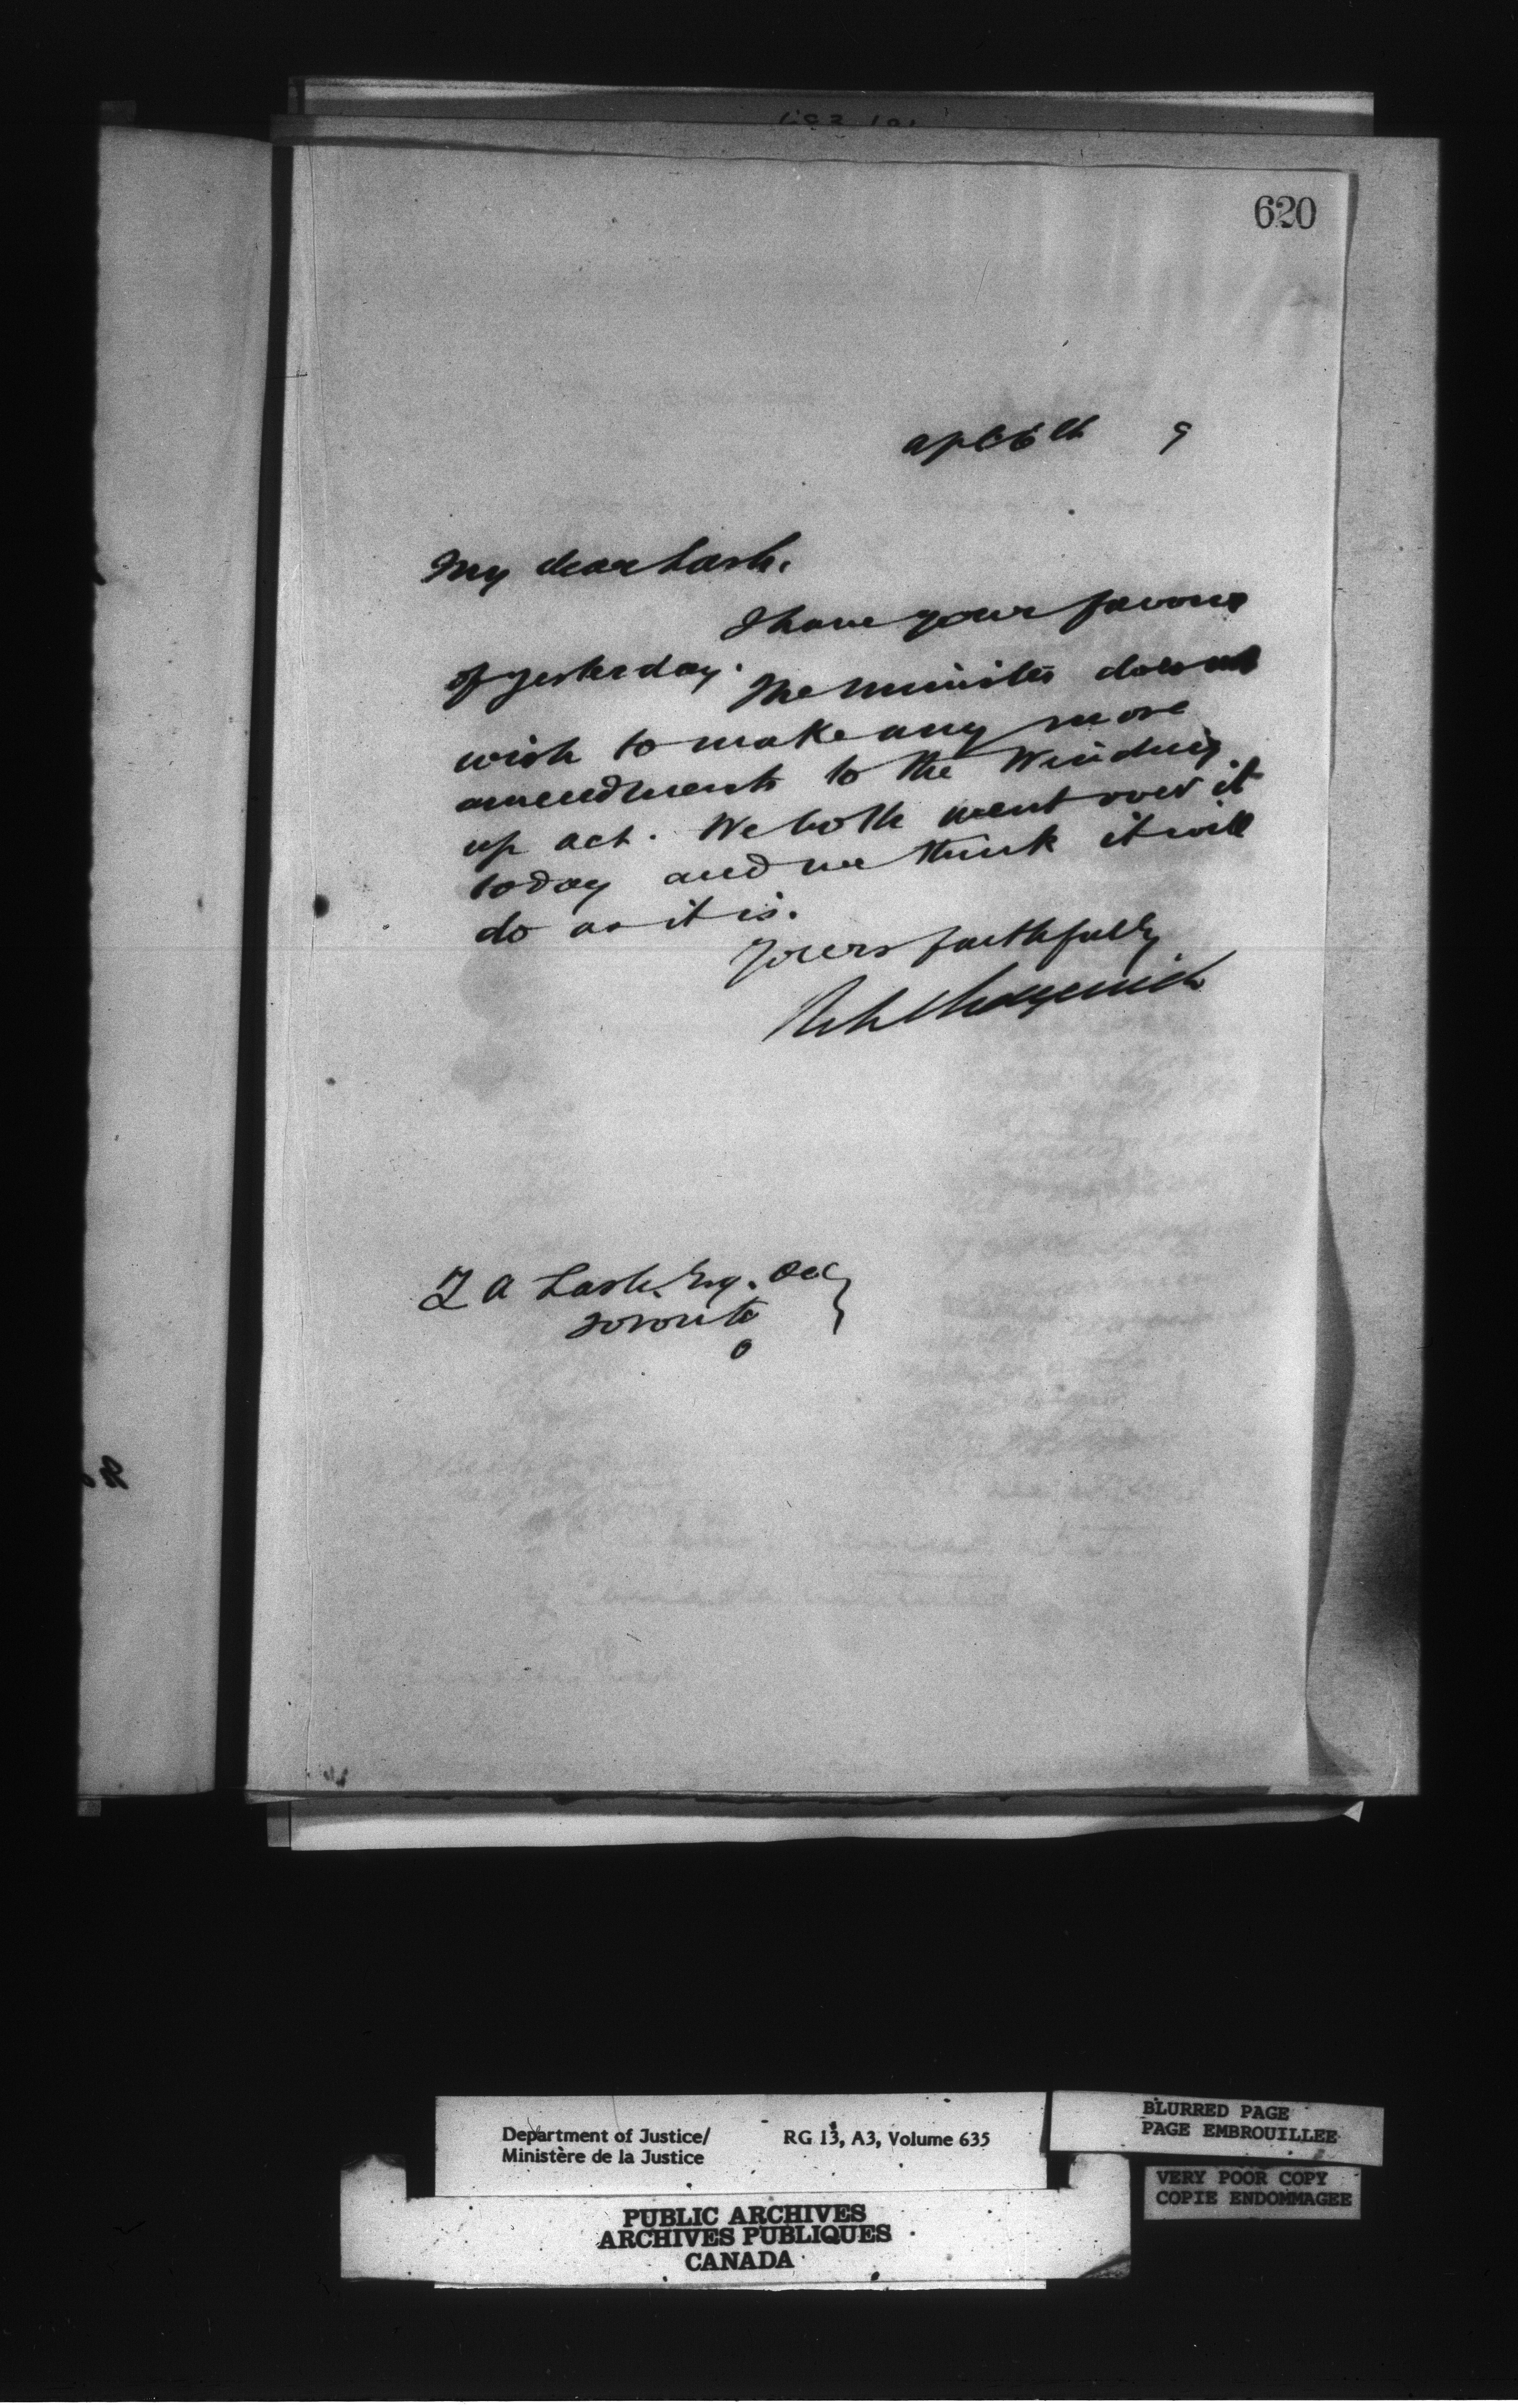 620
Apl 6th 9
My dear Lash,
I have your favour
of yesterday. The Minister does not
wish to make any more
amendments to the Winding
up act. We both went over it
today and we think it will
do as it is.
Yours faithfully
Z A Lash, Esq. QC
Toronto
O
Department of Justice/
Ministère de la Justice
RG 13, A3, Volume 635
BLURRED PAGE
PAGE EMBROUILLEE
VERY POOR COPY
COPIE ENDOMMAGEE
PUBLIC ARCHIVES
ARCHIVES PUBLIQUES
CANADA